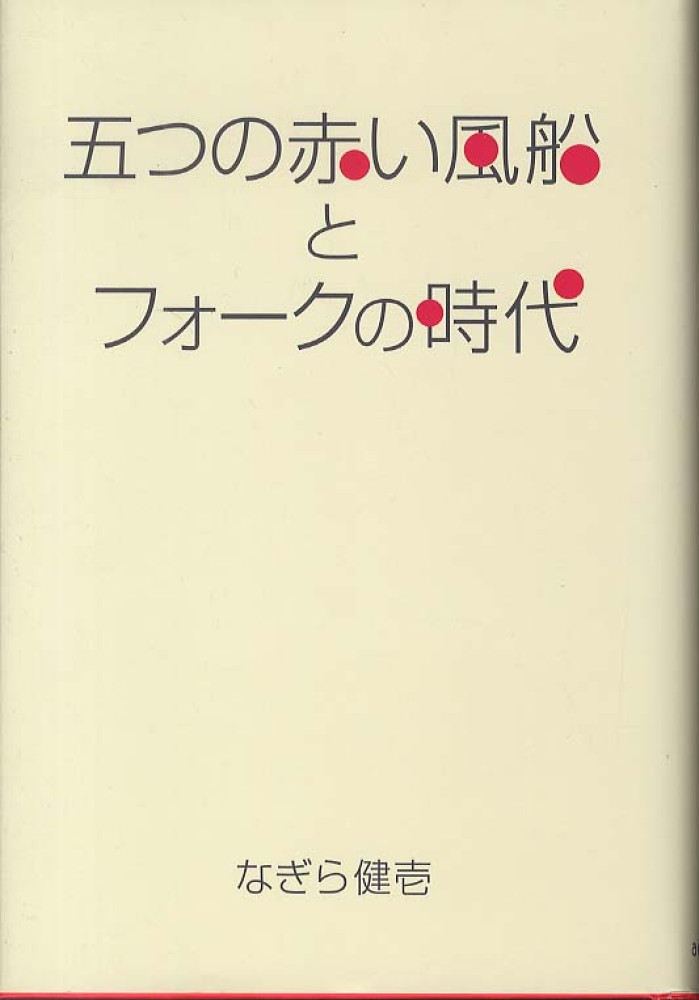 五つの赤い風船
と
フォークの時代
なぎら健壱